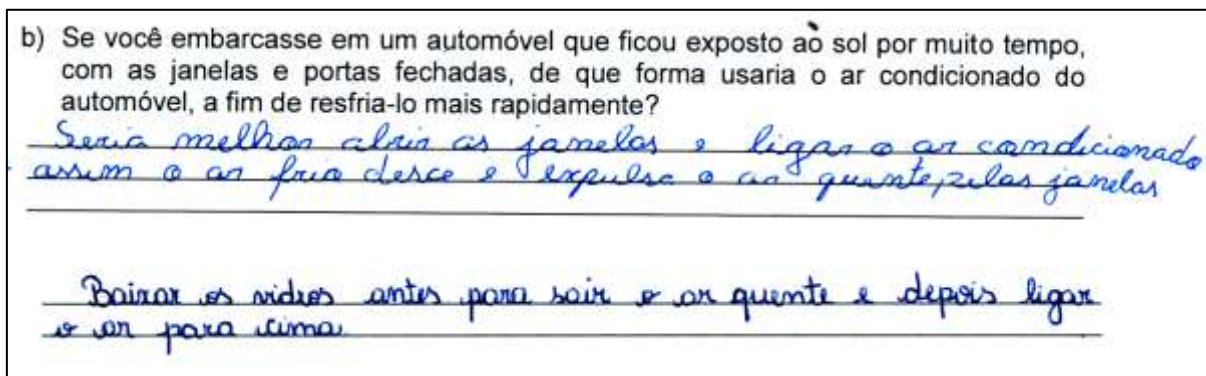 b) Se você embarcasse em um automóvel que ficou exposto ao sol por muito tempo,
com as janelas e portas fechadas, de que forma usaria o ar condicionado do
automóvel, a fim de resfria-lo mais rapidamente?
Seria melhor abrir as janelas e ligar o ar condicionado
assim o ar frio desce e expulsa o ar quente, pelas janelas
Baixar os vidros antes para sair o ar quente e depois ligar
o ar para cima